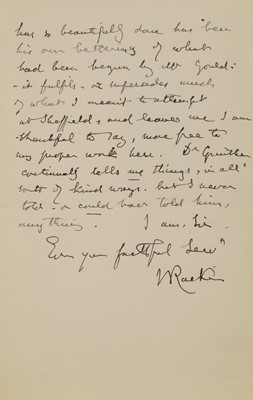 has so beautifully done has been
his own bettering of what
had been begun by Mr Gould:
- it fulfils - or supersedes much
of what I meant to attempt
at Sheffield, and leaves me I am
thankful to say, more free to
my proper work here. Dr Günther
continually tells me things, in all
sorts of kind ways. but I never
told - or could have told him,
anything. I am, Sir
Ever your faithful Servt
J Ruskin